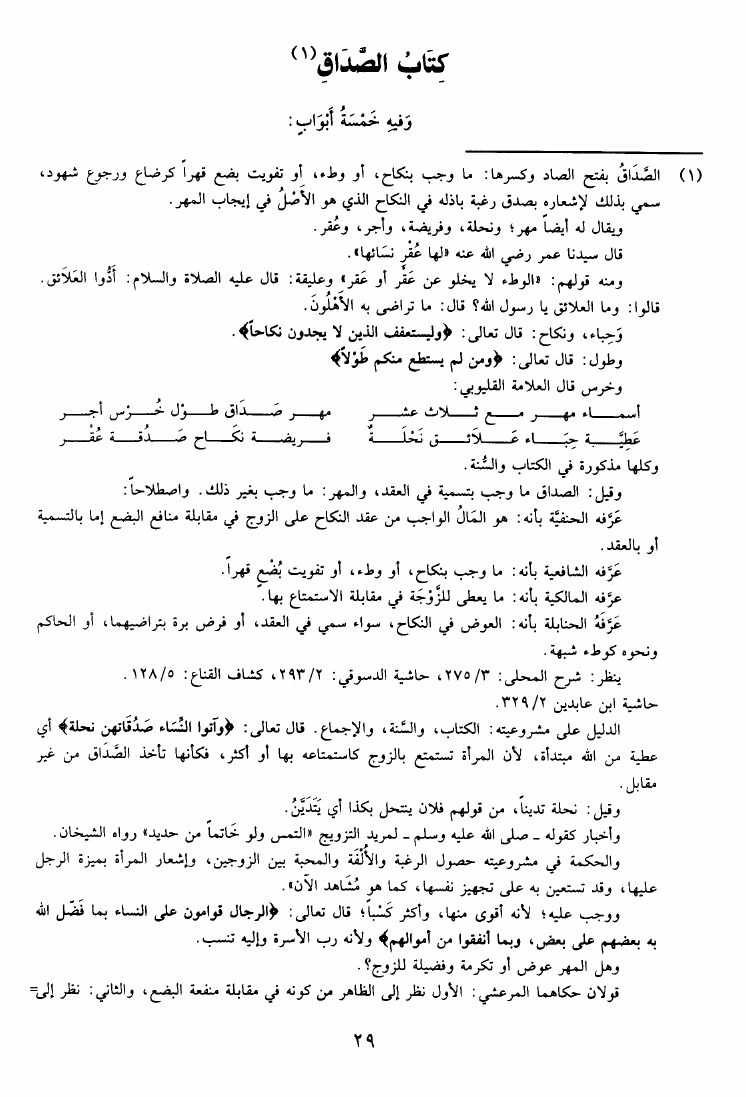 كِتَابُ الصَّدَاقِ(١)
وَفِيهِ خَمْسَةُ أَبْوَابٍ:
(١) الصَّدَاقُ بفتح الصاد وكسرها: ما وجب بنكاح، أو وطء، أو تفويت بضع قهراً كرضاع ورجوع شهود،
سمي بذلك لإشعاره بصدق رغبة باذله في النكاح الذي هو الأَصْلُ في إيجاب المهر.
ويقال له أيضاً مهر؛ ونحلة، وفريضة، وأجر، وعُقر.
قال سيدنا عمر رضي الله عنه «لها عُقْر نسَائها».
ومنه قولهم: «الوطء لا يخلو عن عَقْر أو عَقر» وعليقة: قال عليه الصلاة والسلام: أَدُّوا العَلَائق.
قالوا: وما العلائق يا رسول الله؟ قال: ما تراضى به الأَهْلُونَ.
وَحِباء، ونكاح: قال تعالى: ﴿وليستعفف الذين لا يجدون نكاحاً﴾.
وطول: قال تعالى: ﴿ومن لم يستطع منكم طَوْلاً﴾
وخرس قال العلامة القليوبي:
أسمـاء مهـر مـع ثـلاث عشـر مهـر صَـدَاق طـوْل خُـرْس أجـر
عَطِيَّـة حِبَـاء عَـلَائـق نَحْلَـةٌ فـريضـة نكَـاح صَـدُقـة عُقْـر
وكلها مذكورة في الكتاب والسُّنة.
وقيل: الصداق ما وجب بتسمية في العقد، والمهر: ما وجب بغير ذلك. واصطلاحاً:
عَرَّفه الحنفيَّة بأنه: هو المَالُ الواجب من عقد النكاح على الزوج في مقابلة منافع البضع إما بالتسمية
أو بالعقد.
عَرَّفه الشافعية بأنه: ما وجب بنكاح، أو وطء، أو تفويت بُضْعٍ قهراً.
عرَّفه المالكية بأنه: ما يعطى للزَّوْجَة في مقابلة الاستمتاع بها.
عَرَّفَهُ الحنابلة بأنه: العوض في النكاح، سواء سمي في العقد، أو فرض برة بتراضيهما، أو الحاكم
ونحوه كوطء شبهة.
ينظر: شرح المحلى: ٢٧٥/٣، حاشية الدسوقي: ٢٩٣/٢، كشاف القناع: ١٢٨/٥.
حاشية ابن عابدين ٣٢٩/٢.
الدليل على مشروعيته: الكتاب، والسَّنة، والإجماع. قال تعالى: ﴿وآتوا النِّسَاء صَدُقَاتهن نحلة﴾ أي
عطية من الله مبتدأة، لأن المرأة تستمتع بالزوج كاستمتاعه بها أو أكثر، فكأنها تأخذ الصَّدَاق من غير
مقابل.
وقيل: نحلة تديناً، من قولهم فلان ينتحل بكذا أي يَتَدَيَّنُ.
وأخبار كقوله ـ صلى الله عليه وسلم ـ لمريد التزويج «التمس ولو خَاتماً من حديد» رواه الشيخان.
والحكمة في مشروعيته حصول الرغبة والأُلْفَة والمحبة بين الزوجين، وإشعار المرأة بميزة الرجل
عليها، وقد تستعين به على تجهيز نفسها، كما هو مُشَاهد الآن».
ووجب عليه؛ لأنه أقوى منها، وأكثر كَسْباً؛ قال تعالى: ﴿الرجال قوامون على النساء بما فَضّل الله
به بعضهم على بعض، وبما أنفقوا من أموالهم﴾ ولأنه رب الأسرة وإليه تنسب.
وهل المهر عوض أو تكرمة وفضيلة للزوج؟.
قولان حكاهما المرعشي: الأول نظر إلى الظاهر من كونه في مقابلة منفعة البضع، والثاني: نظر إلى=
٢٩